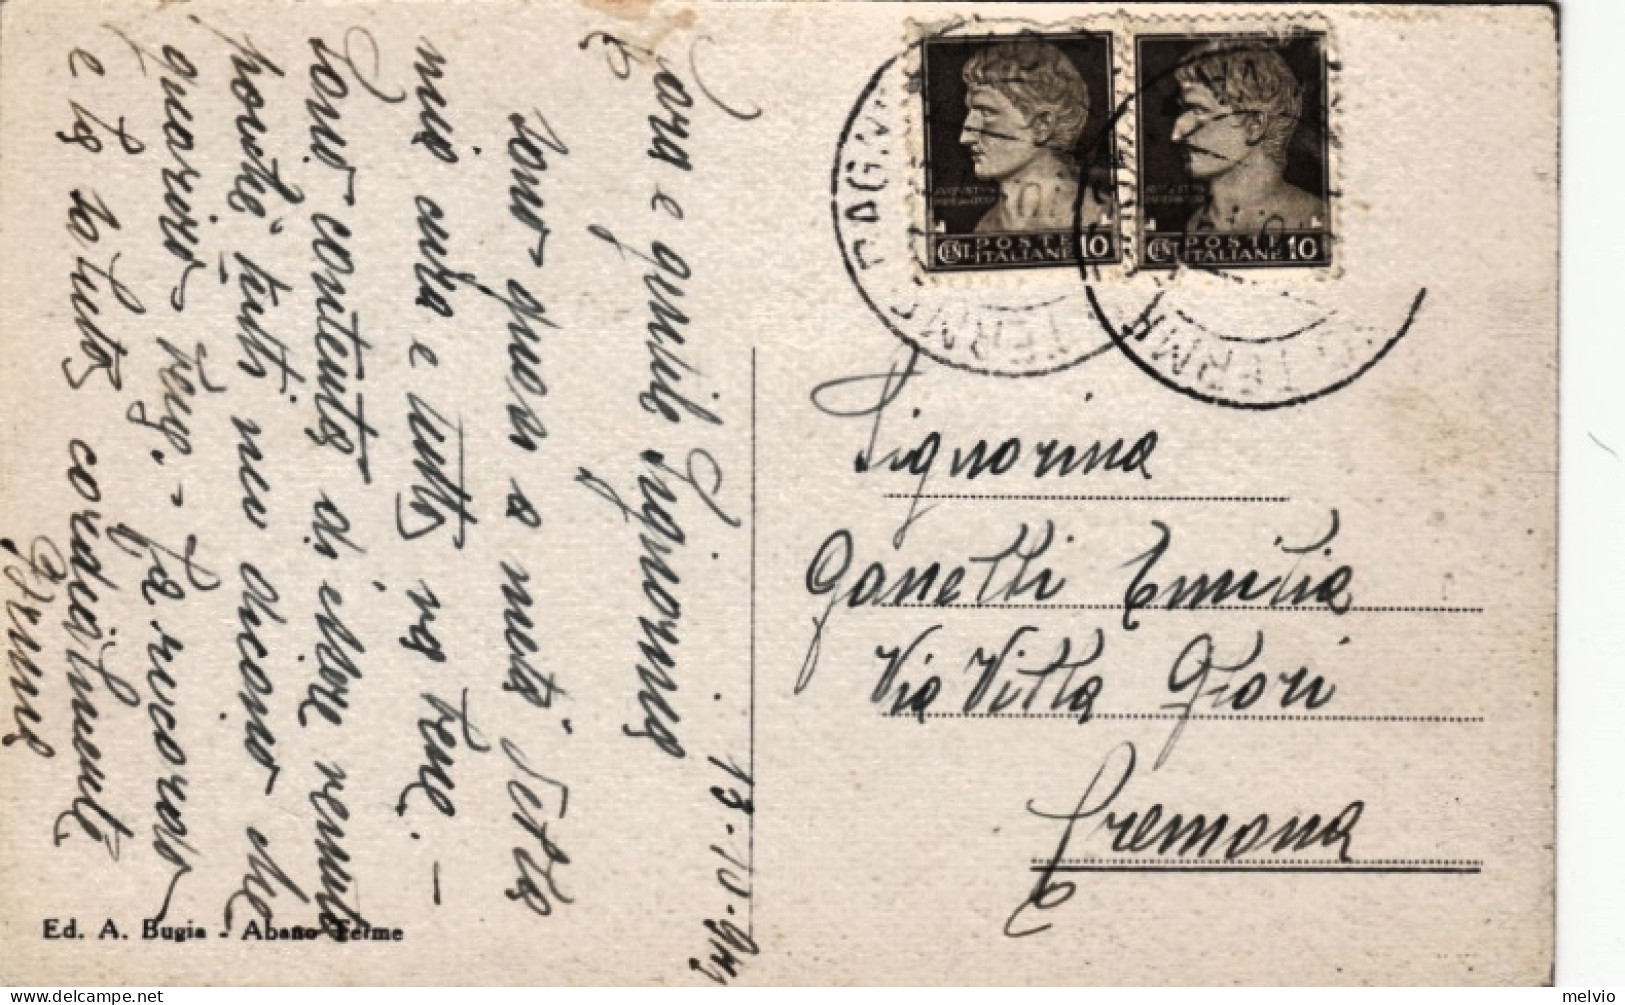 Cara e gentile Signorina
sono quasi a metà della
mia cura e tutto va bene. –
Sono contenta di essere venuta
poiché tutti mi dicono che
guarirò bene. – La ricordo
e la saluto cordialmente
Irma
13-10-943
Signorina
Ganetti Emilia
Via Villa Glori
Cremona
Ed. A. Bugia - Abano Terme
POSTE ITALIANE
CENT. 10
POSTE ITALIANE
CENT. 10
TERME
TERME
melvio